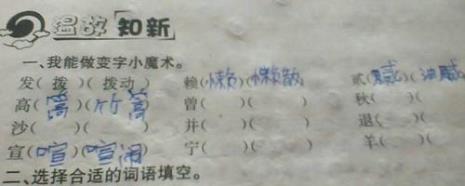 温故知新
一、我能做变字小魔术。
发(拨)(拨动) 赖(懒)(懒散) 贰(腻)(油腻)
高(篙)(竹篙) 曾( )( ) 秋( )(
沙( )( ) 并( )( ) 退( )(
宣(喧)(喧闹) 宁( )( ) 羊( )(
二、选择合适的词语填空。